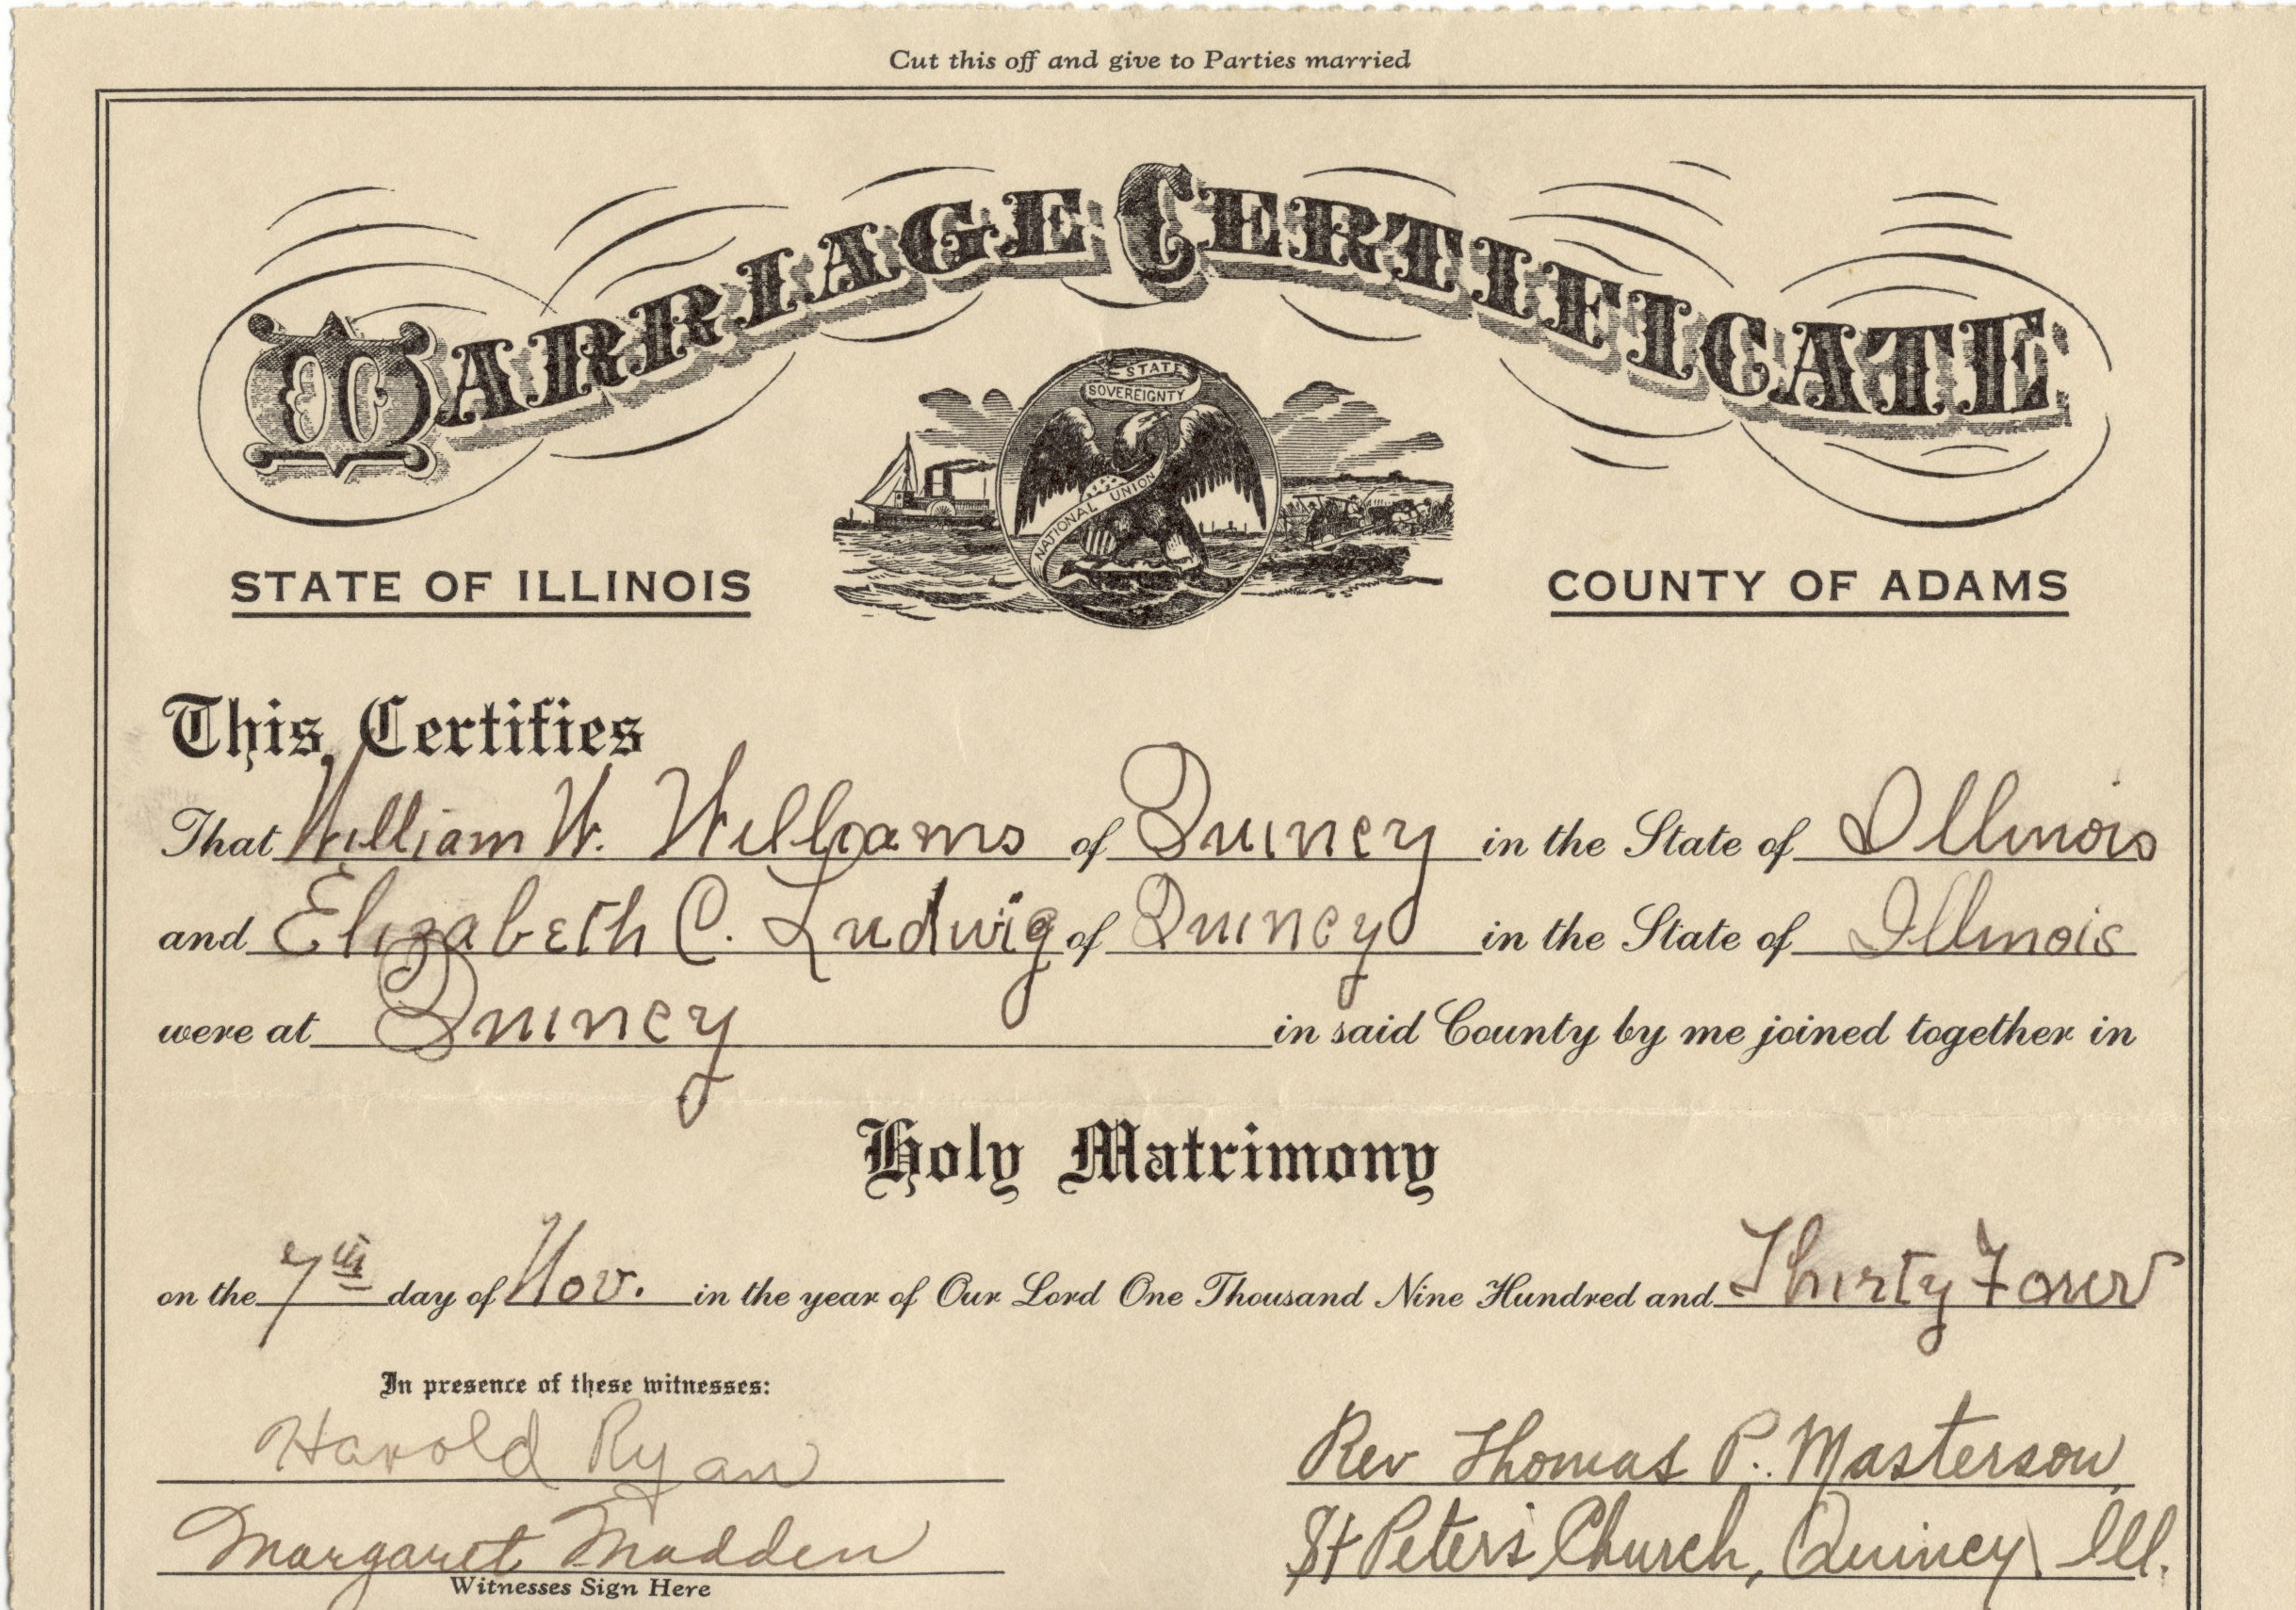 Cut this off and give to Parties married
MARRIAGE CERTIFICATE
STATE SOVEREIGNTY
NATIONAL UNION
STATE OF ILLINOIS COUNTY OF ADAMS
This Certifies
That William W. Williams of Quincy in the State of Illinois
and Elizabeth C. Ludwig of Quincy in the State of Illinois
were at Quincy in said County by me joined together in
Holy Matrimony
on the 7th day of Nov. in the year of Our Lord One Thousand Nine Hundred and Thirty Four
In presence of these witnesses:
Harold Ryan Rev Thomas P. Masterson
Margaret Madden St Peter's Church, Quincy Ill.
Witnesses Sign Here